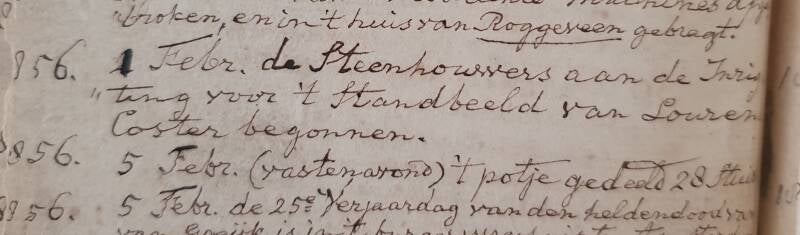 broken, en in 't huis van Roggeveen gebragt.
856. 1 Febr. de Steenhouwers aan de Inrig
"ting voor 't Standbeeld van Louren
Coster begonnen.
1856. 5 Febr. (vastenavond) 't potje gedeeld 28 Stui
1856. 5 Febr. de 25e Verjaardag van den heldendood van